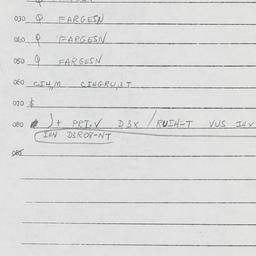 030 Q FARGESN
040 Q FARGESN
050 Q FARGESN
060 CIH,M CIHGRU,IT
070 $
080 )+ PRI,V D3X / RUIH-T VUS IHV
IEN D3ROB-NT
085